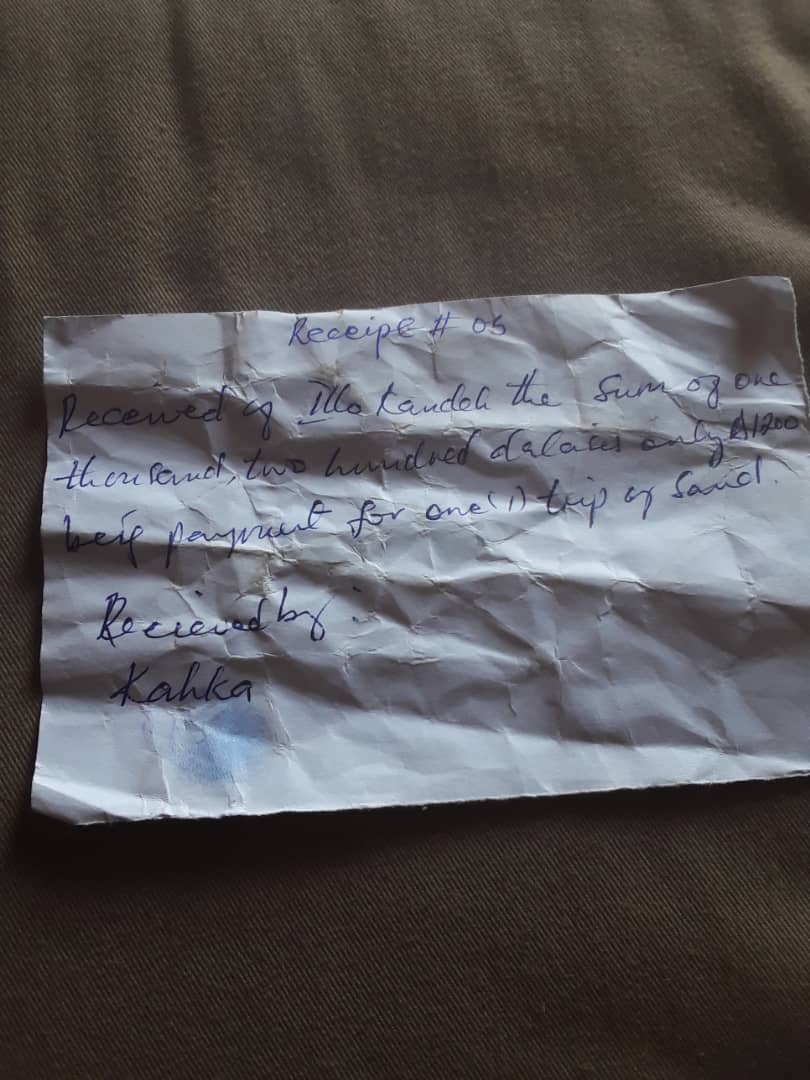 Receipt # 05
Received of Illo Kandeh the Sum of one
thousand, two hundred dalacis only D1200
beig payment for one (1) trip of Sand.
Recieved by :
Kahka